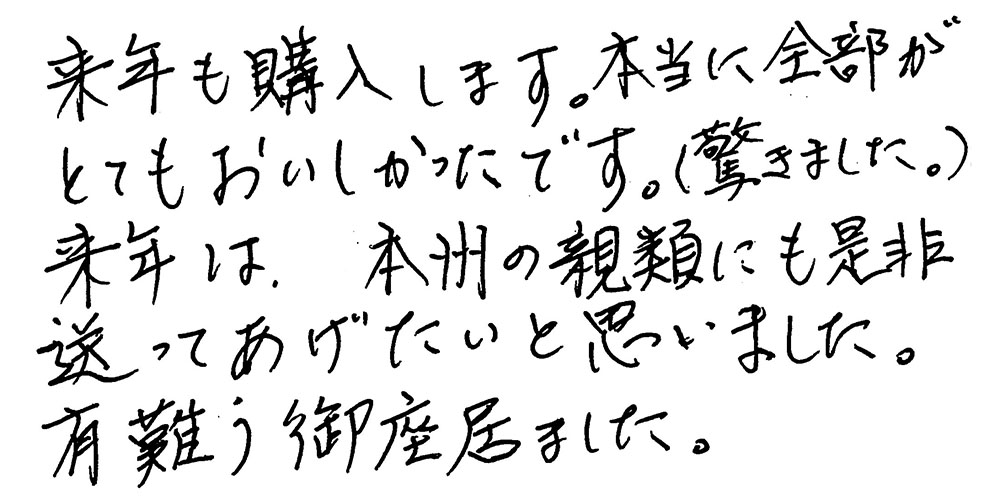 来年も購入します。本当に全部が
とてもおいしかったです。(驚きました。)
来年は、本州の親類にも是非
送ってあげたいと思いました。
有難う御座居ました。